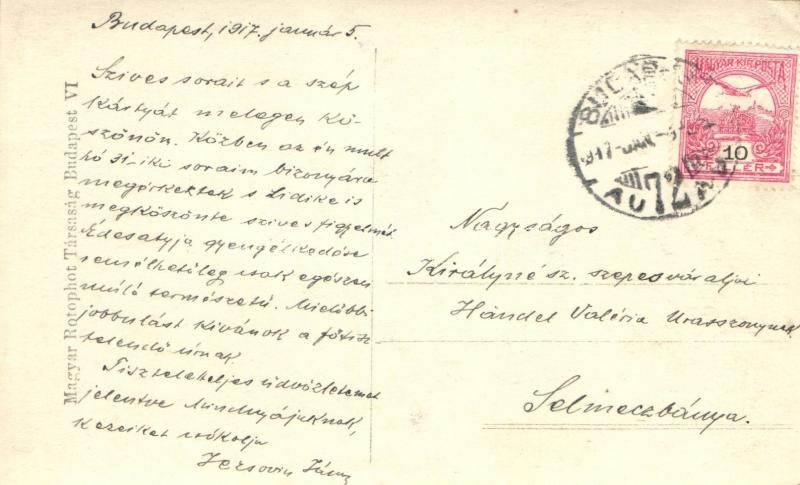 Budapest, 1917. január 5.
Szives sorait s a szép
kártyát melegen kö-
szönöm. Közben az én mult
hó 31-iki soraim bizonyára
megérkeztek s Lidike is
megköszönte szives figyelmét.
Édesatyja gyengélkedése
remélhetőleg csak egészen
muló természetű. Mielőbbi
jobbulást kivánok a főtisz-
telendő úrnak.
Tiszteletteljes üdvözletemet
jelentve Mindnyájuknak,
kezeiket csókolja
János
Magyar Rotophot Társaság Budapest VI
MAGYAR KIR. POSTA
10
FILLÉR
BUDAPEST
917 JAN
72
Nagyságos
Királyné sz. szepesváraljai
Händel Valéria Urasszonynak
Selmeczbánya.